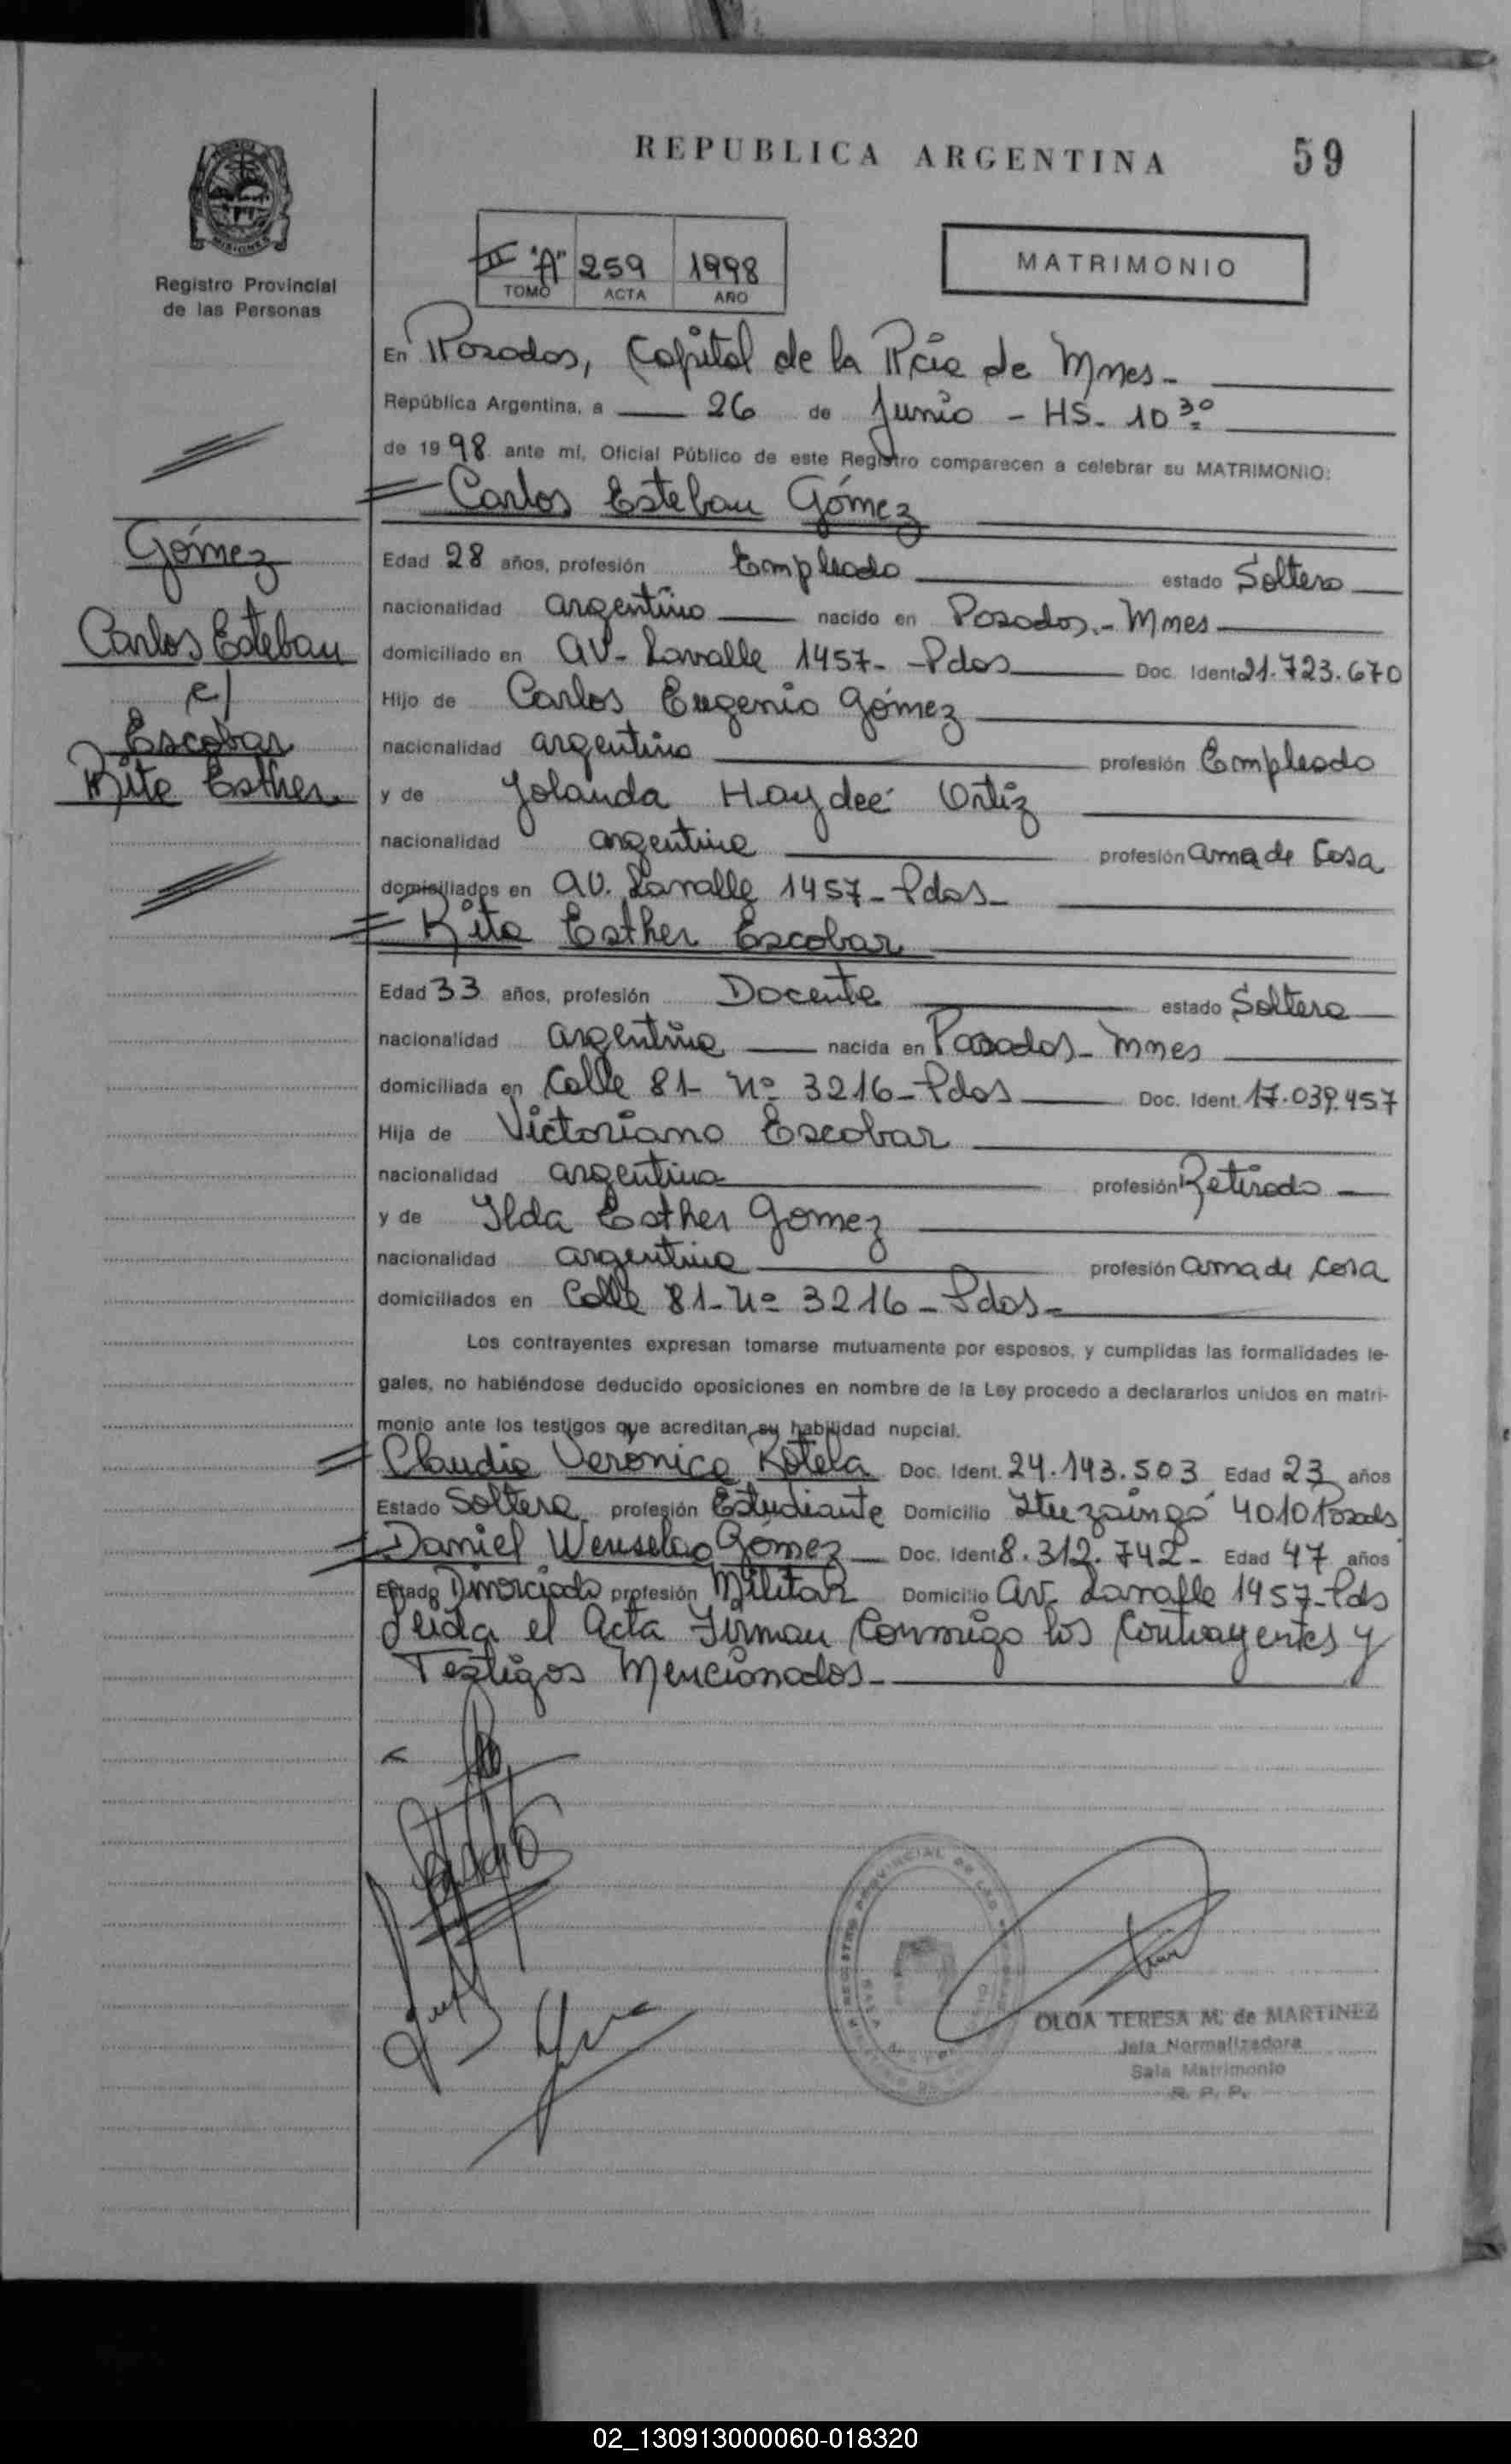 REPUBLICA ARGENTINA
59
Registro Provincial
de las Personas
II "A" 259 1998
TOMO ACTA AÑO
MATRIMONIO
En Posadas, Capital de la Pcia de Mnes-
República Argentina, a 26 de Junio - HS. 10 30
de 19 98 ante mí, Oficial Público de este Registro comparecen a celebrar su MATRIMONIO:
Carlos Esteban Gómez
Gómez
Carlos Esteban
c/
Escobar
Rita Esther
Edad 28 años, profesión Empleado estado Soltero
nacionalidad argentino nacido en Posadas.- Mnes
domiciliado en av- Lavalle 1457- -Pdas Doc. Ident. 21.723.670
Hijo de Carlos Eugenio Gómez
nacionalidad argentino profesión Empleado
y de Yolanda Haydeé Ortiz
nacionalidad argentina profesión ama de casa
domiciliados en av. Lavalle 1457- Pdas-
Rita Esther Escobar
Edad 33 años, profesión Docente estado Soltera
nacionalidad argentina nacida en Posadas- Mnes
domiciliada en Calle 81- Nº 3216- Pdas Doc. Ident. 17.039.457
Hija de Victoriano Escobar
nacionalidad argentino profesión Retirado
y de Ilda Esther Gomez
nacionalidad argentina profesión ama de casa
domiciliados en Calle 81- Nº 3216 - Pdas-
Los contrayentes expresan tomarse mutuamente por esposos, y cumplidas las formalidades le-
gales, no habiéndose deducido oposiciones en nombre de la Ley procedo a declararlos unidos en matri-
monio ante los testigos que acreditan su habilidad nupcial.
Claudia Verónica Rotela Doc. Ident. 24.143.503 Edad 23 años
Estado Soltera profesión Estudiante Domicilio Ituzaingó 4010 Posadas
Daniel Wenselao Gómez Doc. Ident. 8.312.742- Edad 47 años
Estado Divorciado profesión Militar Domicilio av. Lavalle 1957- Pds
Leida el acta Firman Conmigo los Contrayentes y
Testigos Mencionados-
OLGA TERESA M. de MARTINEZ
Jefa Normalizadora
Sala Matrimonio
R. P. P.
02_130913000060-018320